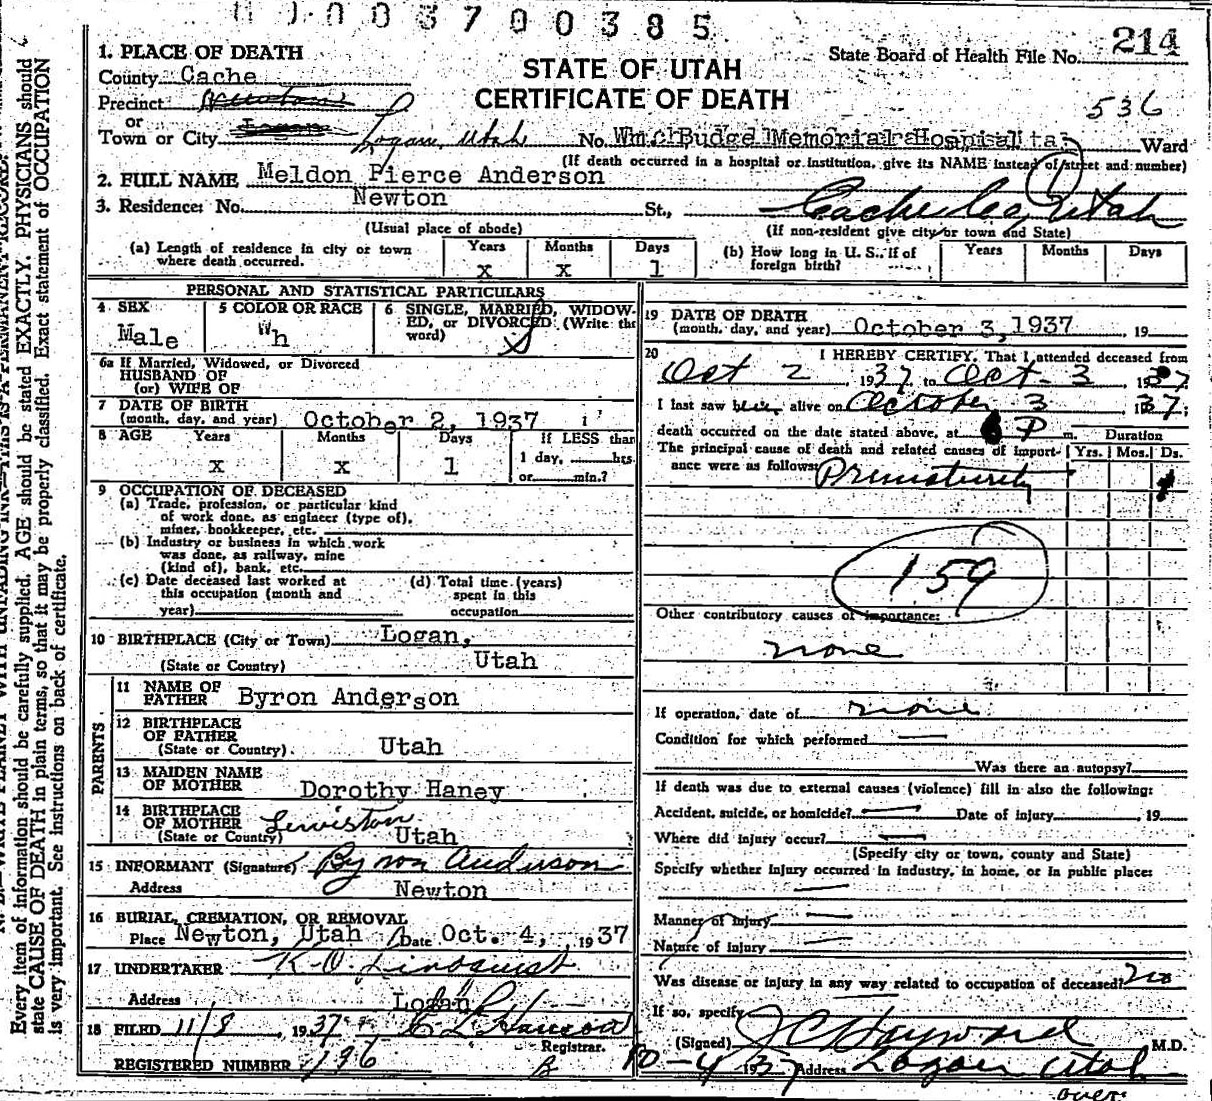 003700385
State Board of Health File No. 214
1. PLACE OF DEATH
STATE OF UTAH
CERTIFICATE OF DEATH
County Cache
Precinct Newton
536
or
Town or City Logan Logan, Utah No. Wm. Budge Memorial Hospital Ward
(If death occurred in a hospital or institution, give its NAME instead of street and number)
1
2. FULL NAME Meldon Pierce Anderson
3. Residence: No. Newton St., Cache Co, Utah
(Usual place of abode)
(If non-resident give city or town and State)
(a) Length of residence in city or town where death occurred. Years x Months x Days 1
(b) How long in U. S., if of foreign birth? Years Months Days
PERSONAL AND STATISTICAL PARTICULARS
4 SEX Male
5 COLOR OR RACE Wh
6 SINGLE, MARRIED, WIDOWED, or DIVORCED: (Write the word) S
6a If Married, Widowed, or Divorced
HUSBAND OF
(or) WIFE OF
7 DATE OF BIRTH
(month, day, and year) October 2, 1937
8 AGE Years x Months x Days 1
If LESS than
1 day, hrs.
or min.?
9 OCCUPATION OF DECEASED
(a) Trade, profession, or particular kind
of work done, as engineer (type of),
miner, bookkeeper, etc.
(b) Industry or business in which work
was done, as railway, mine
(kind of), bank, etc.
(c) Date deceased last worked at
this occupation (month and
year)
(d) Total time (years)
spent in this
occupation
10 BIRTHPLACE (City or Town) Logan,
(State or Country) Utah
PARENTS
11 NAME OF
FATHER Byron Anderson
12 BIRTHPLACE
OF FATHER
(State or Country) Utah
13 MAIDEN NAME
OF MOTHER Dorothy Haney
14 BIRTHPLACE
OF MOTHER Lewiston
(State or Country) Utah
15 INFORMANT (Signature) Byron Anderson
Address Newton
16 BURIAL, CREMATION, OR REMOVAL
Place Newton, Utah Date Oct. 4, 1937
17 UNDERTAKER K. O. Lindquist
Address Logan
18 FILED 11/8, 1937
Registrar.
REGISTERED NUMBER 196
19 DATE OF DEATH
(month, day, and year) October 3, 1937, 19
20 I HEREBY CERTIFY, That I attended deceased from
Oct 2, 1937, to Oct. 3, 1937
I last saw him alive on October 3 1937;
death occurred on the date stated above, at 6 P m. Duration
The principal cause of death and related causes of importance were as follows: Yrs. Mos. Ds.
Prematurity 1
159
Other contributory causes of importance:
none
If operation, date of none
Condition for which performed
Was there an autopsy?
If death was due to external causes (violence) fill in also the following:
Accident, suicide, or homicide? Date of injury, 19
Where did injury occur?
(Specify city or town, county and State)
Specify whether injury occurred in industry, in home, or in public place:
Manner of injury
Nature of injury
Was disease or injury in any way related to occupation of deceased? no
If so, specify
(Signed) J C Hayward M.D.
10-4 1937 Address Logan Utah
over
Every item of information should be carefully supplied. AGE should be stated EXACTLY. PHYSICIANS should
state CAUSE OF DEATH in plain terms, so that it may be properly classified. Exact statement of OCCUPATION
is very important. See instructions on back of certificate.